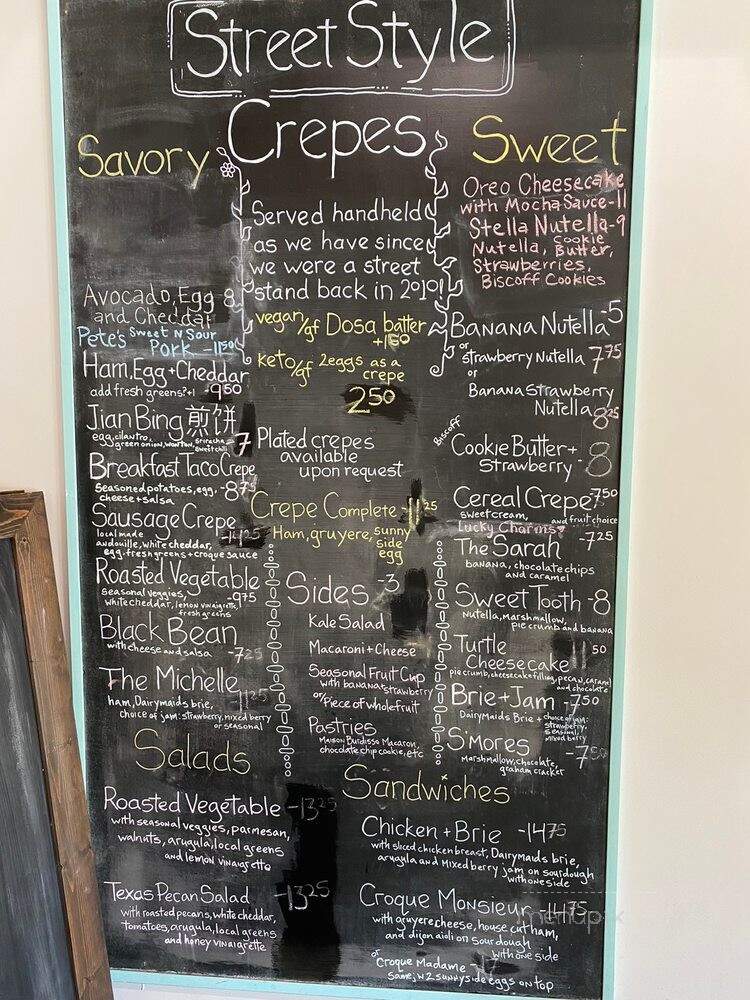 Street Style
Crepes
Savory
Avocado, Egg -8
and Cheddar
Pete's Sweet N Sour
Pork -11.50
Ham, Egg + Cheddar
add fresh greens? +1 -9.50
Jian Bing 煎饼
egg, cilantro,
green onion, wonton, sriracha + sweet chili -7
Breakfast Taco Crepe
Seasoned potatoes, egg, -8.75
cheese + salsa
Sausage Crepe
local made -14.25
andouille, white cheddar,
egg, fresh greens + croque sauce
Roasted Vegetable
Seasonal veggies, -9.75
white cheddar, lemon vinaigrette,
fresh greens
Black Bean
with cheese and salsa -7.25
The Michelle
ham, Dairymaids brie, -11.25
choice of jam: strawberry, mixed berry
or seasonal
Served handheld
as we have since
we were a street
stand back in 2010!
vegan/gf Dosa batter
+1.50
keto/gf 2 eggs as a
crepe
2.50
Plated crepes
available
upon request
Crepe Complete -11.25
Ham, gruyere, sunny
side
egg
Sides -3
Kale Salad
Macaroni + Cheese
Seasonal Fruit Cup
with banana + strawberry
or/ Piece of whole fruit
Pastries
Maison Burdisso Macaron,
chocolate chip cookie, etc
Sweet
Oreo Cheesecake
with Mocha Sauce -11
Stella Nutella -9
Nutella, Cookie Butter,
Strawberries,
Biscoff Cookies
Banana Nutella -5
or
strawberry Nutella 7.75
or
Banana Strawberry
Nutella 8.25
Biscoff
Cookie Butter +
Strawberry -8
Cereal Crepe -7.50
sweet cream, and fruit choice
Lucky Charms?
The Sarah -7.25
banana, chocolate chips
and caramel
Sweet Tooth -8
Nutella, Marshmallow,
pie crumb and banana
Turtle
Cheesecake 11.50
pie crumb, cheesecake filling, pecan, caramel
and chocolate
Brie + Jam -7.50
Dairymaids Brie + choice of jam:
strawberry,
seasonal,
mixed berry
S'mores -7.50
Marshmallow, chocolate,
graham cracker
Salads
Roasted Vegetable -13.25
with seasonal veggies, parmesan,
walnuts, arugula, local greens
and lemon vinaigrette
Texas Pecan Salad -13.25
with roasted pecans, white cheddar,
tomatoes, arugula, local greens
and honey vinaigrette
Sandwiches
Chicken + Brie -14.75
with sliced chicken breast, Dairymaids brie,
arugula and Mixed berry jam on sourdough
with one side
Croque Monsieur -14.75
with gruyere cheese, house cut ham,
and dijon aioli on sourdough
with one side
or Croque Madame
Same, w 2 sunny side eggs on top
menupix